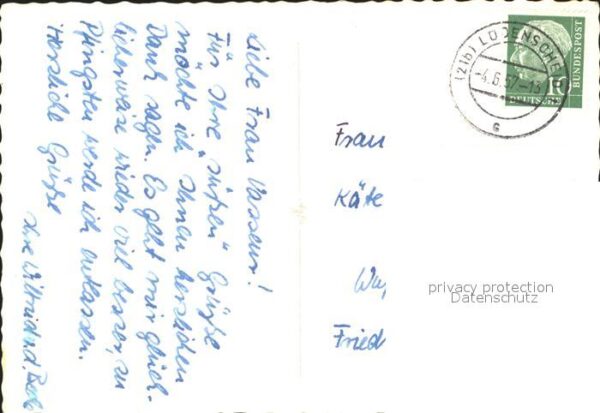 Liebe Frau Vassen!
Für Ihre "süßen" Grüße
möchte ich Ihnen herzlichen
Dank sagen. Es geht mir glück-
licherweise wieder viel besser, zu
Pfingsten werde ich entlassen.
Herzliche Grüße
Ihre
(21b) LÜDENSCHEID
-4.6.57-13
c
10
DEUTSCHE
BUNDESPOST
Frau
Käte
Wa
Fried
privacy protection
Datenschutz